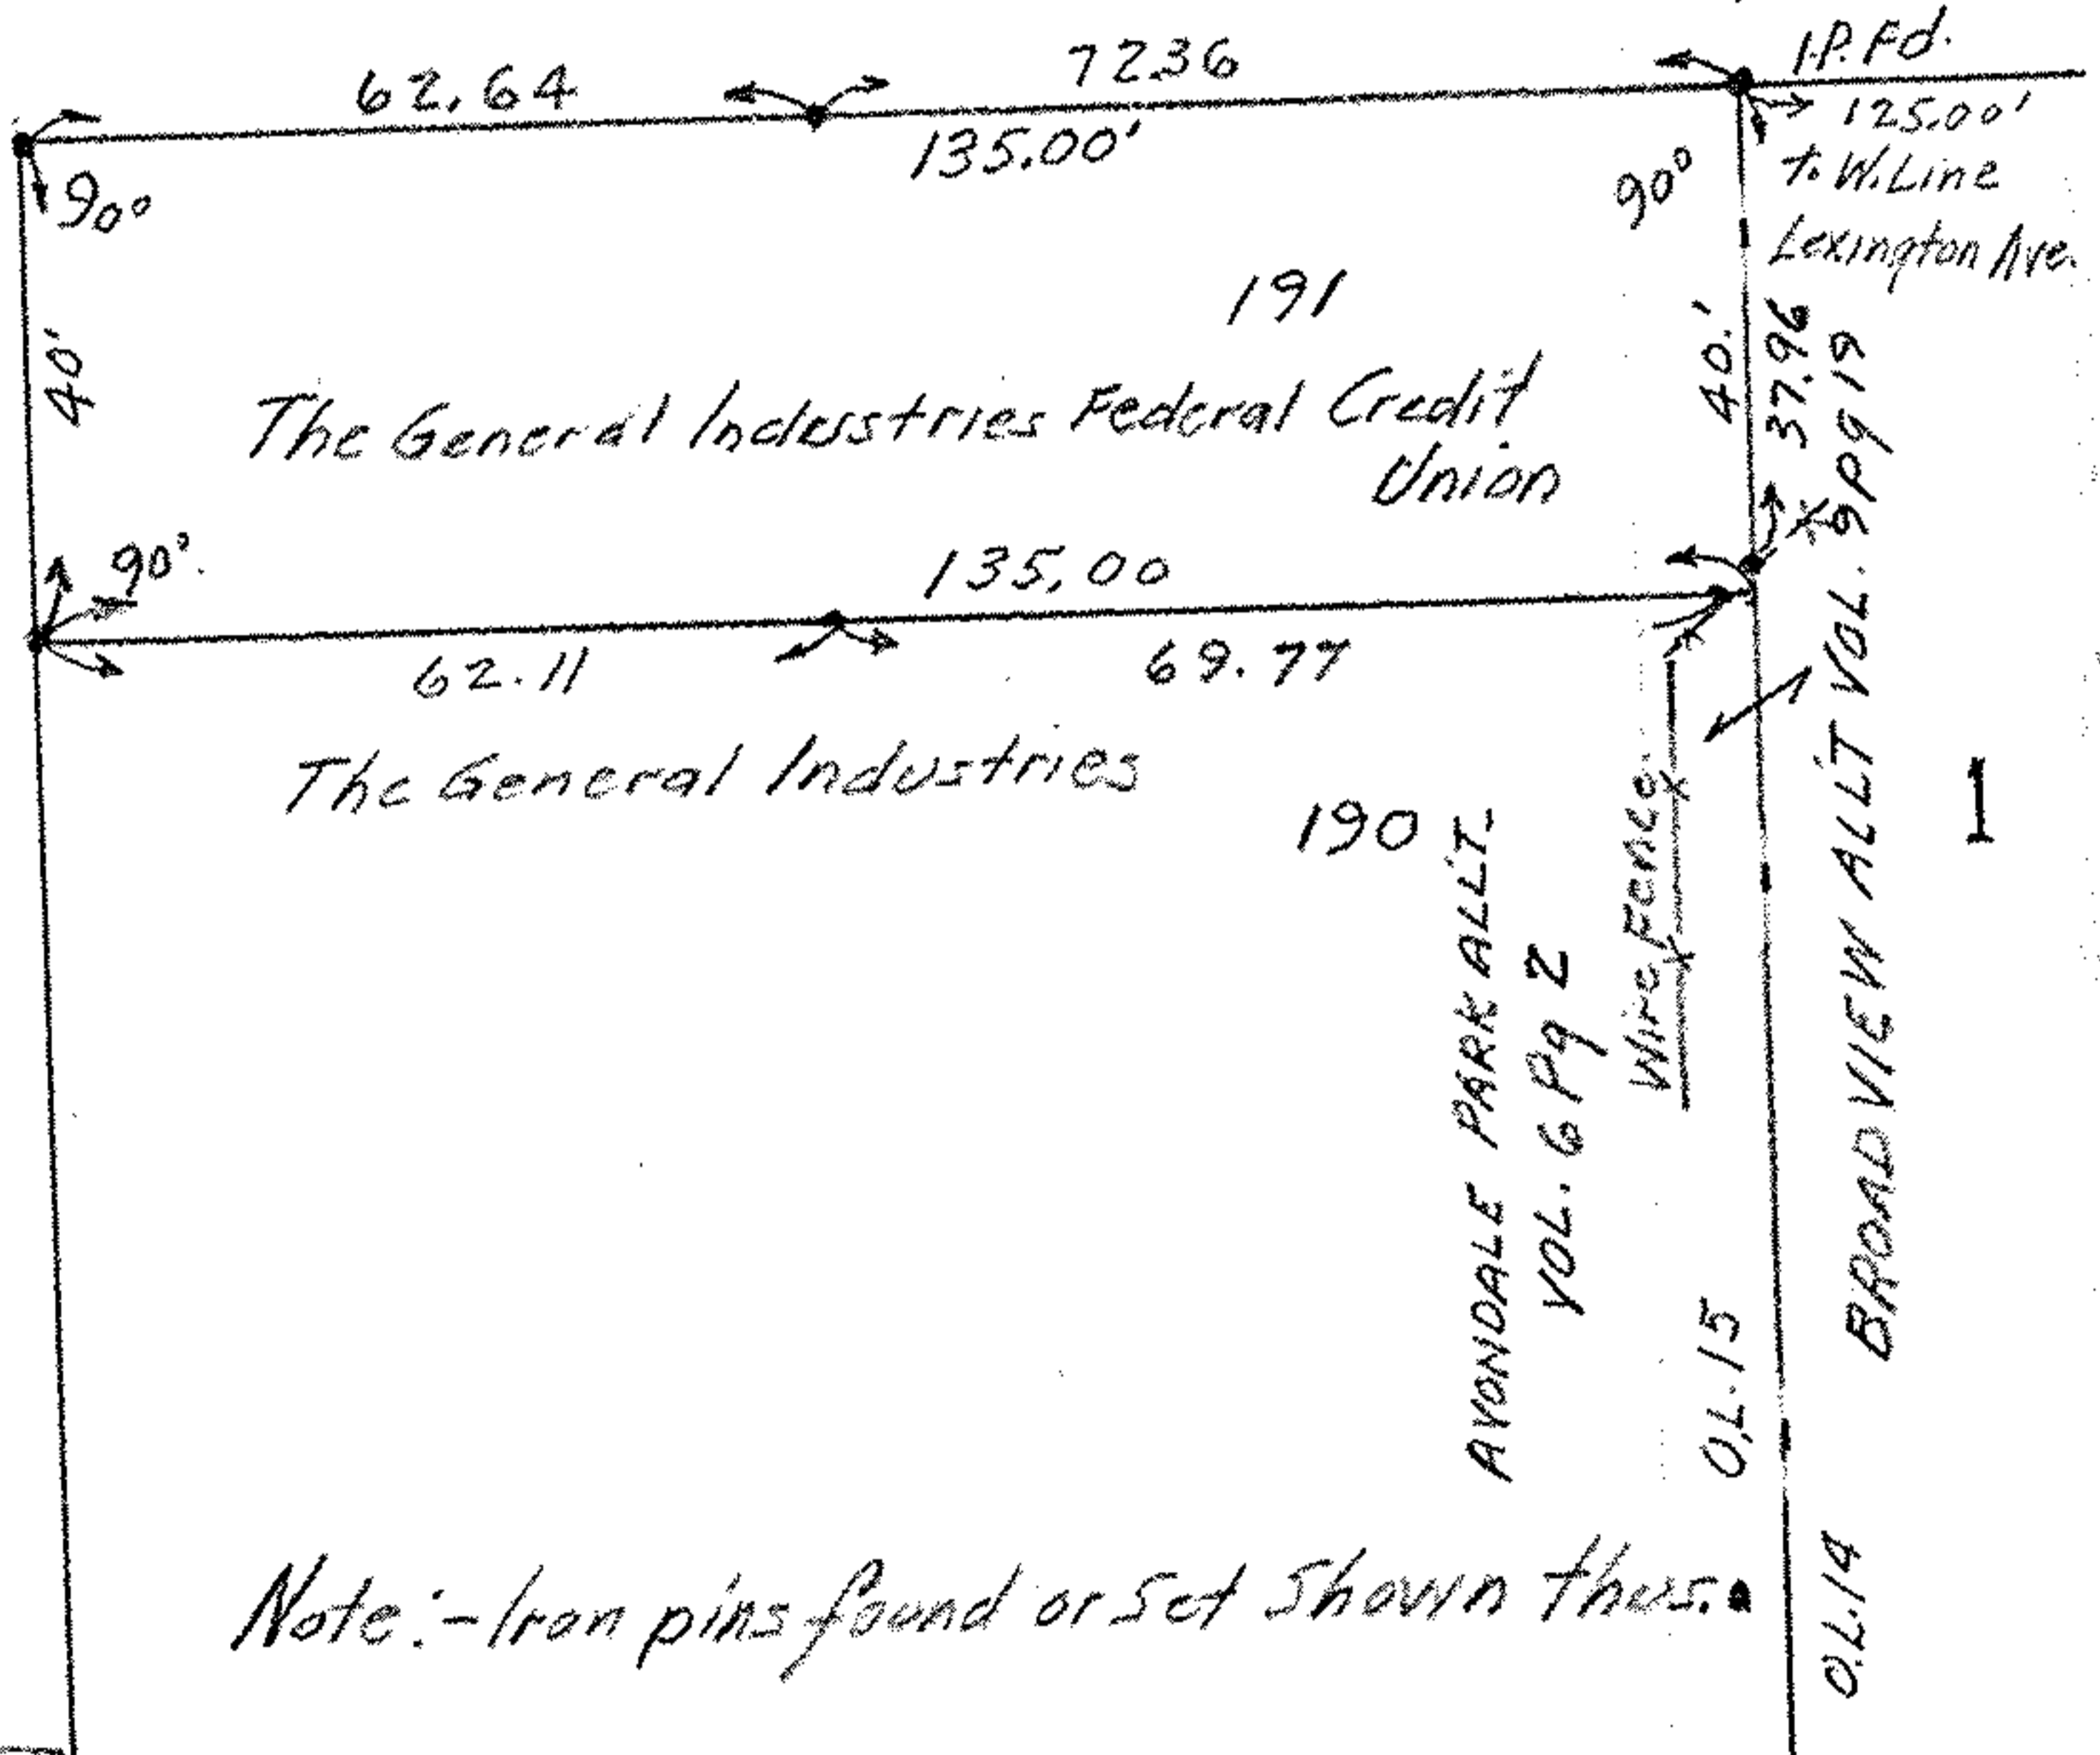 I.P. Fd.
62.64
7236
135.00'
125.00'
t. W. Line
Lexington Ave.
90°
90°
191
40'
40.'
37.96
The General Industries Federal Credit
Union
90°
135.00
62.11
69.77
The General Industries
190
AVONDALE PARK ALL'T.
VOL. 6 Pg 2
Wire Fence
O.L. 15
BROADVIEW ALL'T VOL. 9 Pg 19
1
O.L. 14
Note:- Iron pins found or set shown thus.